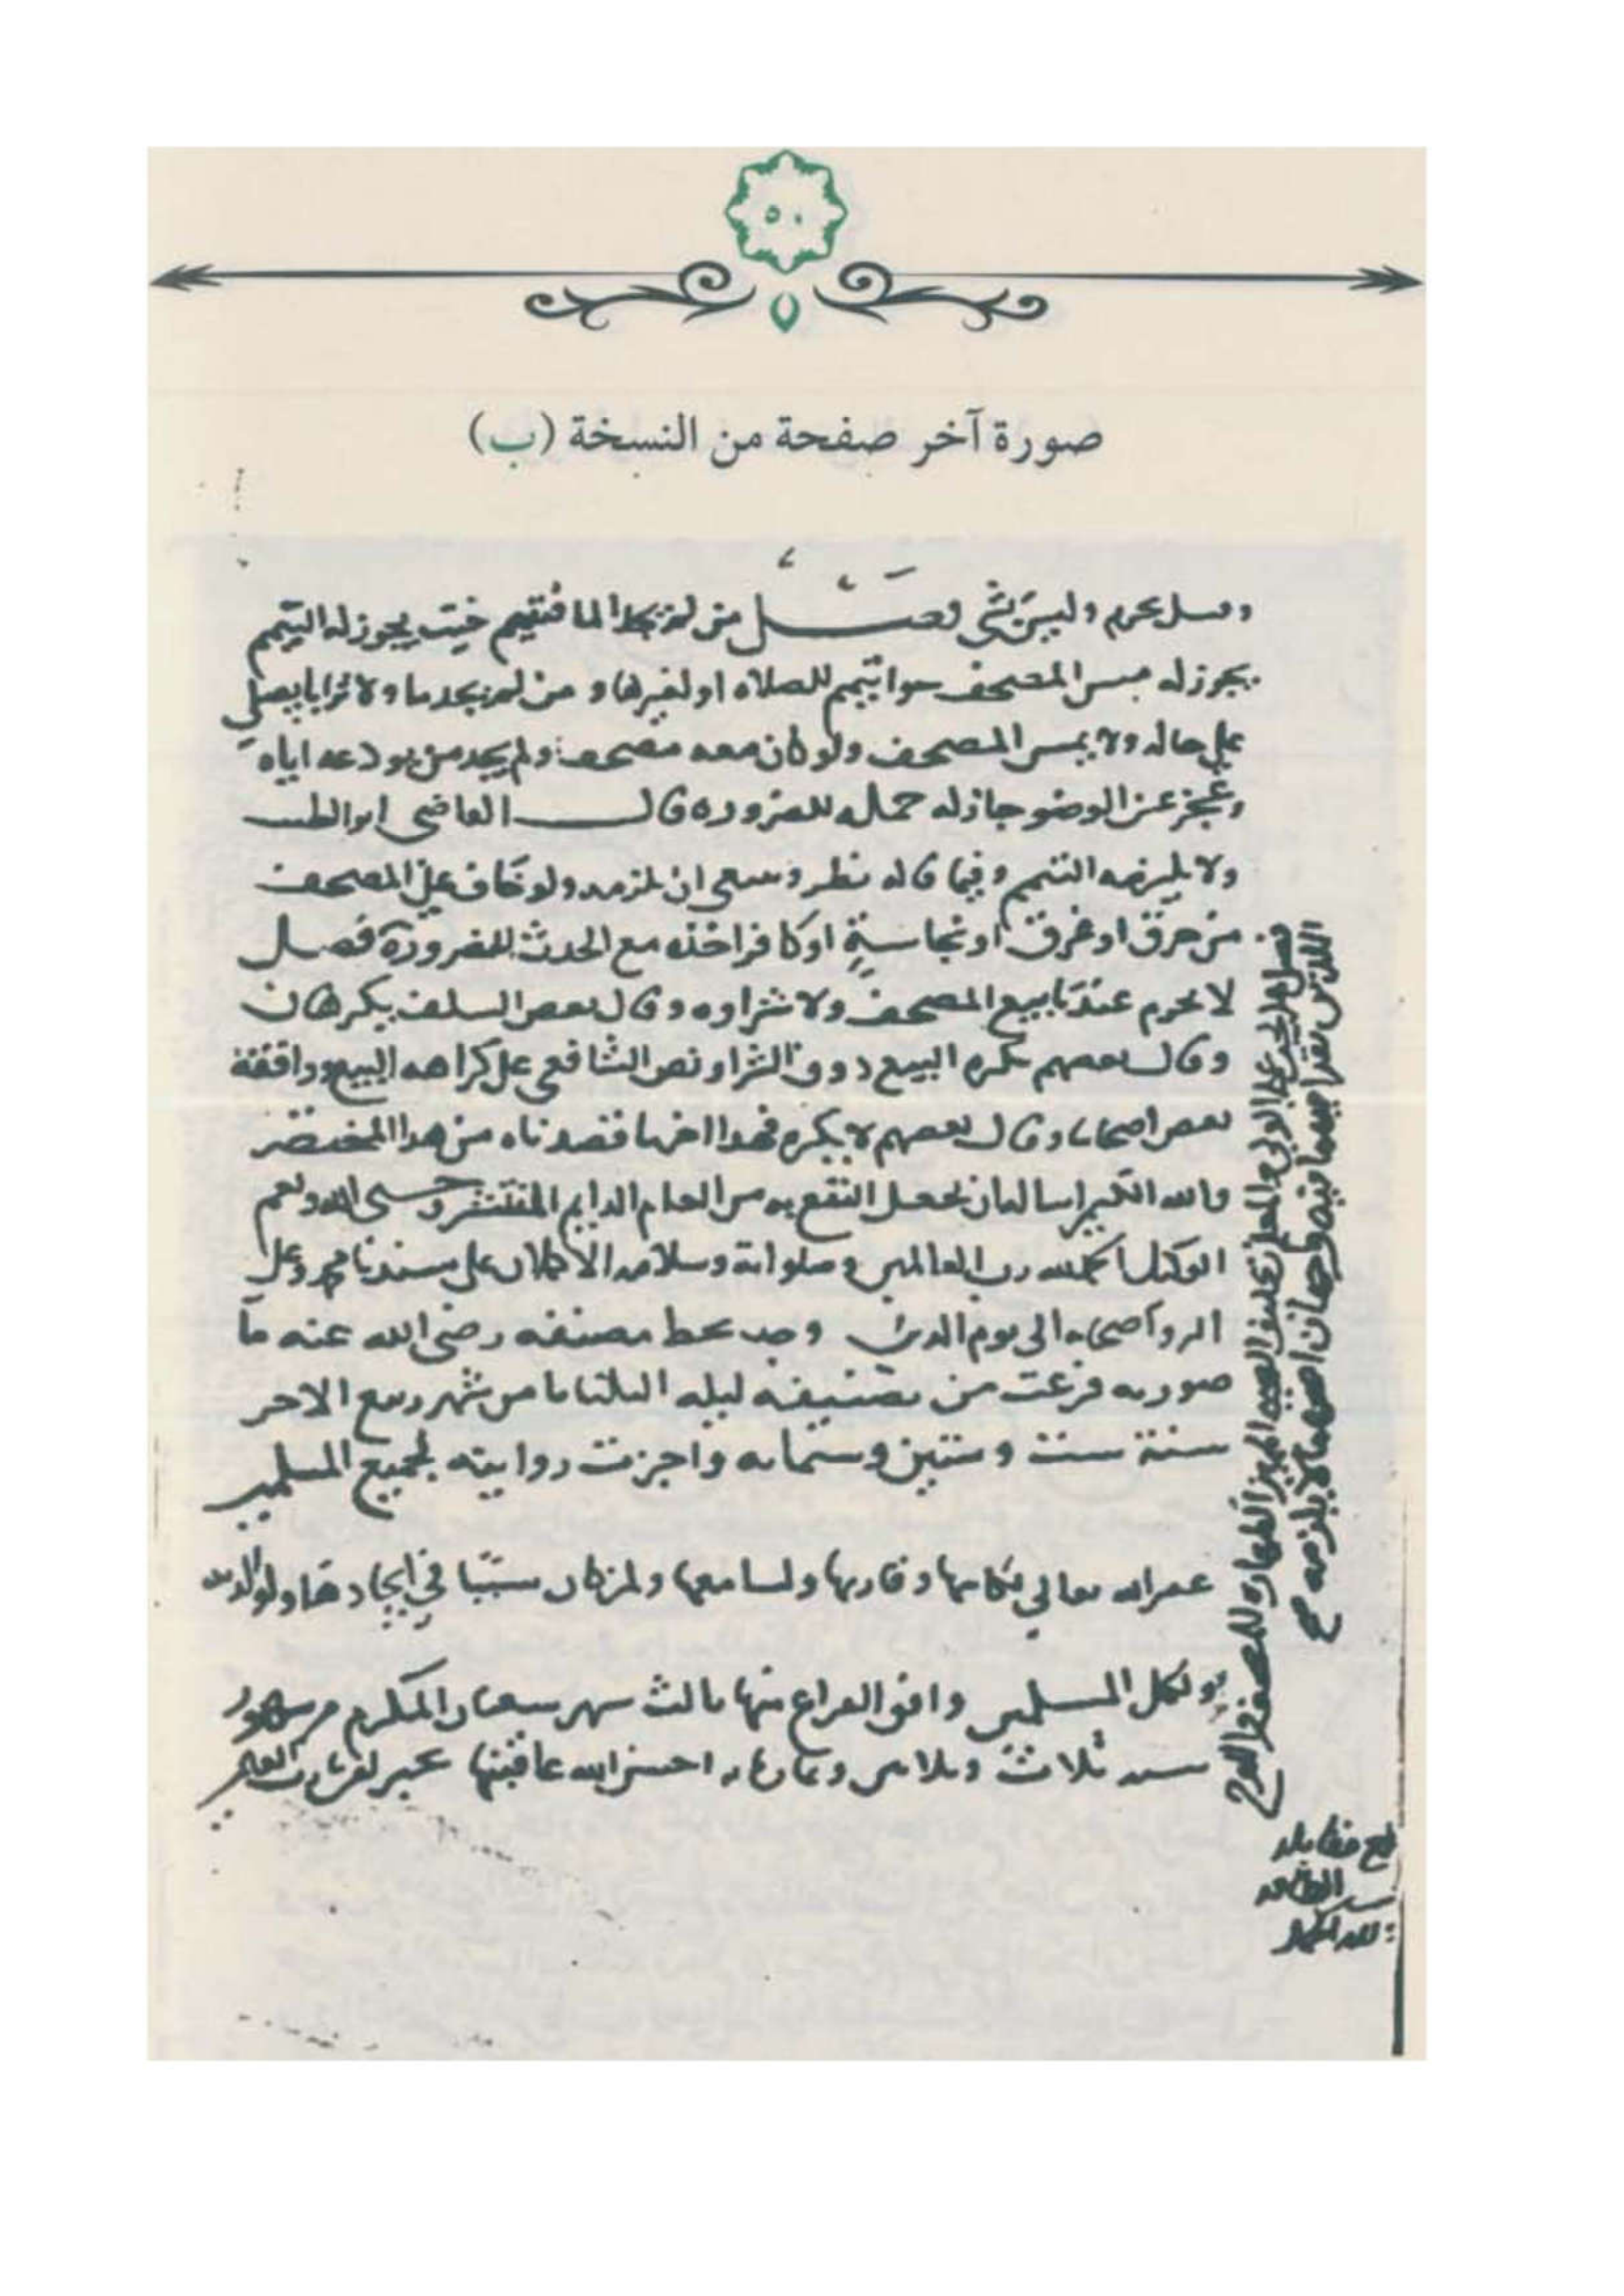 ٥٠
صورة آخر صفحة من النسخة (ب)
وقيل يحرم وليس بشي فصل من لم يجد الما فتيمم حيث يجوز له التيمم
يجوز له مس المصحف سوا تيمم للصلاه او لغيرها و من لم يجد ما ولا ترابا يصلي
على حاله ولا يمس المصحف ولو كان معه مصحف ولم يجد من يودعه اياه
وعجز عن الوضو جاز له حمله للضروره قال القاضي ابو الطيب
ولا يلزمه التيمم وفيما قاله نظر وينبغي ان يلزمه ولو خاف على المصحف
من حرق او غرق او نجاسة او كافر اخذه مع الحدث للضرورة فصل
لا يحرم عندنا بيع المصحف ولا شراوه وقال بعض السلف يكرهان
وقال بعضهم يكره البيع دون الشرا ونص الشافعي على كراهه البيع ووافقه
بعض اصحابنا وقال بعضهم لا يكره فهذا اخر ما قصدناه من هذا المختصر
والله الكريم اسال ان يجعل النفع به من العام الدايم المنتشر وحسبي الله ونعم
الوكيل الحمد لله رب العالمين وصلواته وسلامه الاكملان على سيدنا محمد وعلى
اله واصحابه الى يوم الدين وجد بخط مصنفه رضي الله عنه ما
صورته فرغت من تصنيفه ليله الثلثا ثامن شهر ربيع الاخر
سنة ست وستين وستمايه واجزت روايته لجميع المسلمين
غفر الله تعالى لكاتبها وقاريها ولسامعها ولمن كان سببا في ايجادها ولوالديه
ولكل المسلمين وافق الفراغ منها ثالث شهر شعبان المكرم من شهور
سنه ثلاث وثلاثين وثمانمايه احسن الله عاقبتها بخير
فصل هل يجب على الولي والمعلم تكليف الصبي المميز الطهاره للمصحف واللوح
اللذين يقرا فيهما فيه وجهان اصحهما لا يلزمه صح
بلغ مقابله
الطاقه
لله الحمد